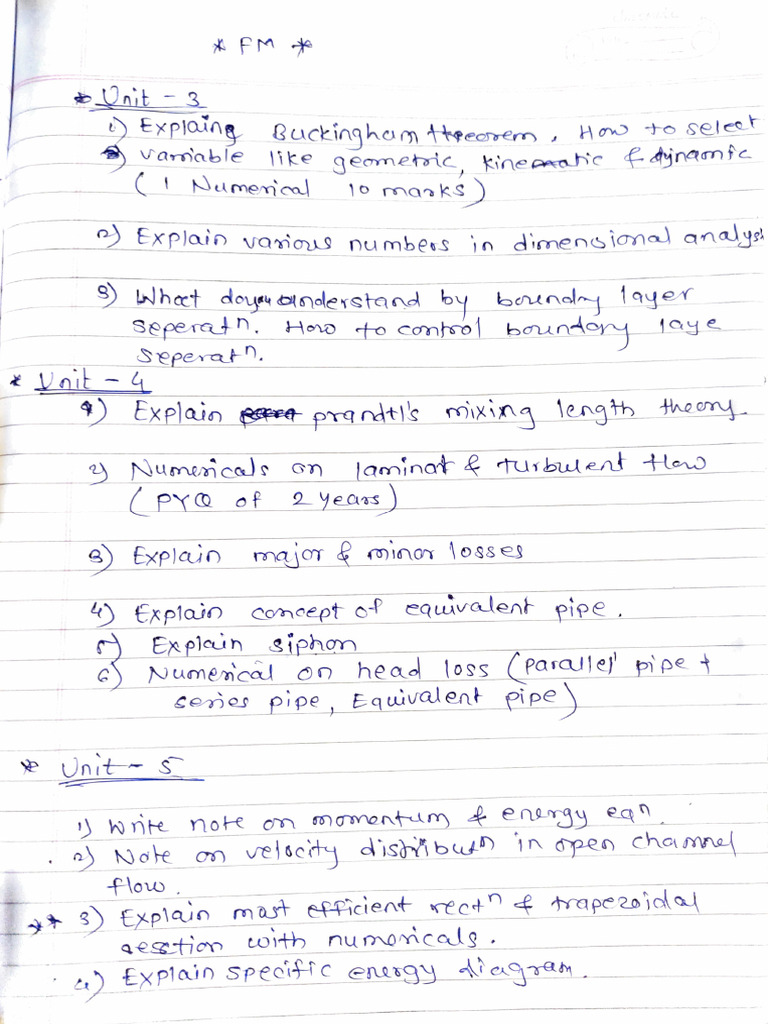 * FM *
* Unit - 3
1) Explain Buckingham theorem. How to select
variable like geometric, kinematic & dynamic
( 1 Numerical 10 marks )
2) Explain various numbers in dimensional analysi
3) What do you understand by boundry layer
seperatn. How to control boundory laye
seperatn.
* Unit - 4
1) Explain prandtl's mixing length theory.
2) Numericals on laminar & turbulent flow
( PYQ of 2 years )
3) Explain major & minor losses
4) Explain concept of equivalent pipe.
5) Explain siphon
6) Numerical on head loss ( parallel pipe +
series pipe, Equivalent pipe )
* Unit - 5
1) Write note on momentum & energy eqn.
2) Note on velocity distributn in open channel
flow.
** 3) Explain most efficient rectn & trapezoidal
section with numericals.
4) Explain specific energy diagram.